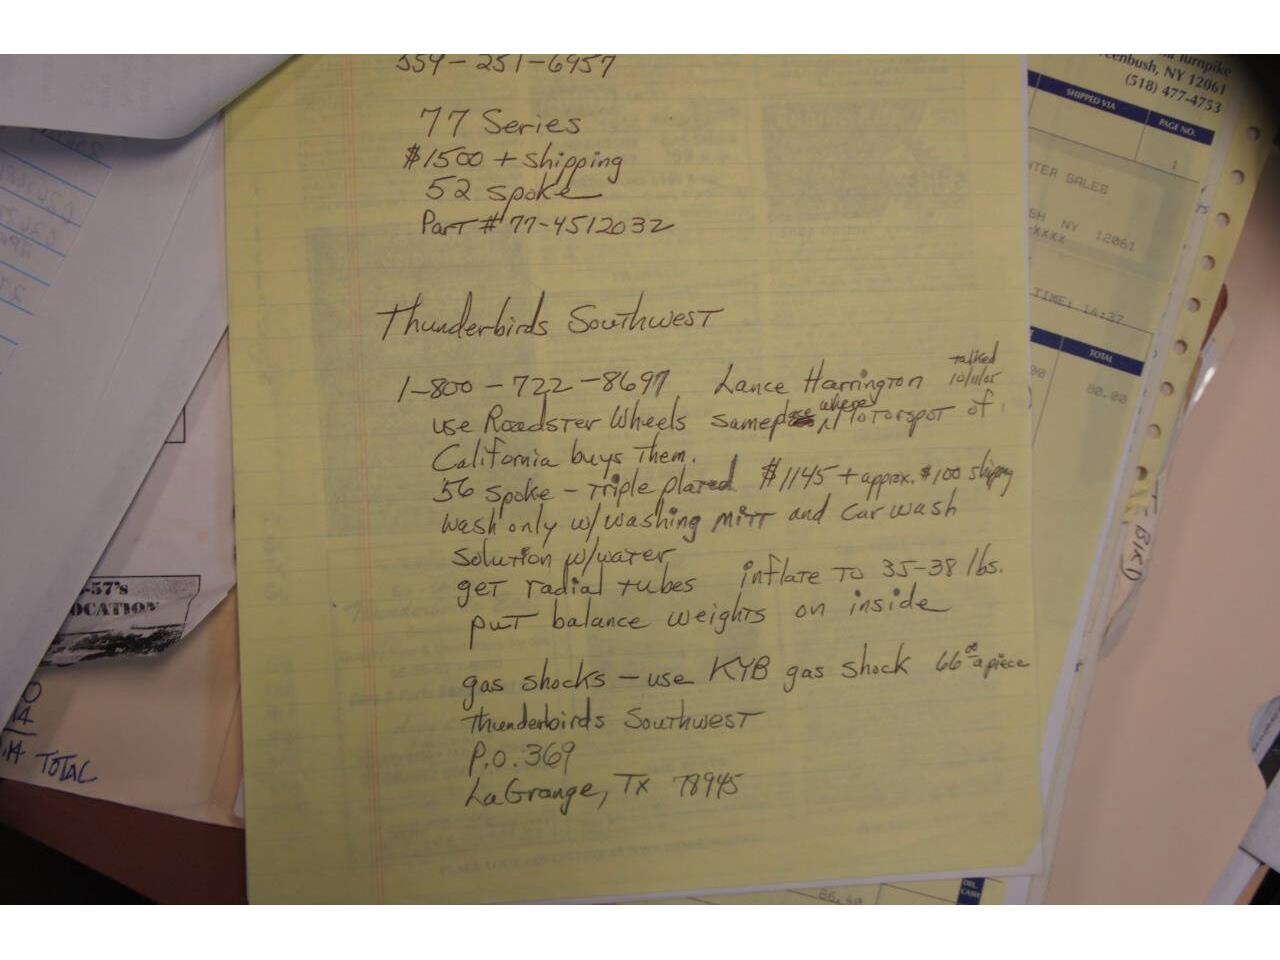 559-251-6957
77 Series
$1500 + shipping
52 spoke
Part # 77-4512032
Thunderbirds Southwest
1-800-722-8697 Lance Harrington talked 10/11/05
use Roadster Wheels same where Motorspot of
California buys them.
56 spoke - triple plated $1145 + approx. $100 shipping
wash only w/washing mitt and car wash
solution w/water
get radial tubes inflate to 35-38 lbs.
put balance weights on inside
gas shocks - use KYB gas shock 66.00 a piece
Thunderbirds Southwest
P.O. 369
LaGrange, TX 78945
Turnpike
enbush, NY 12061
(518) 477-4753
SHIPPED VIA
PAGE NO.
1
NTER SALES
SH NY 12061
-XXXX
TIME: 14:37
TOTAL
00
80.00
BIRD
DEL.
CASH
86.40
-57's
OCATION
0
14
.14 TOTAL